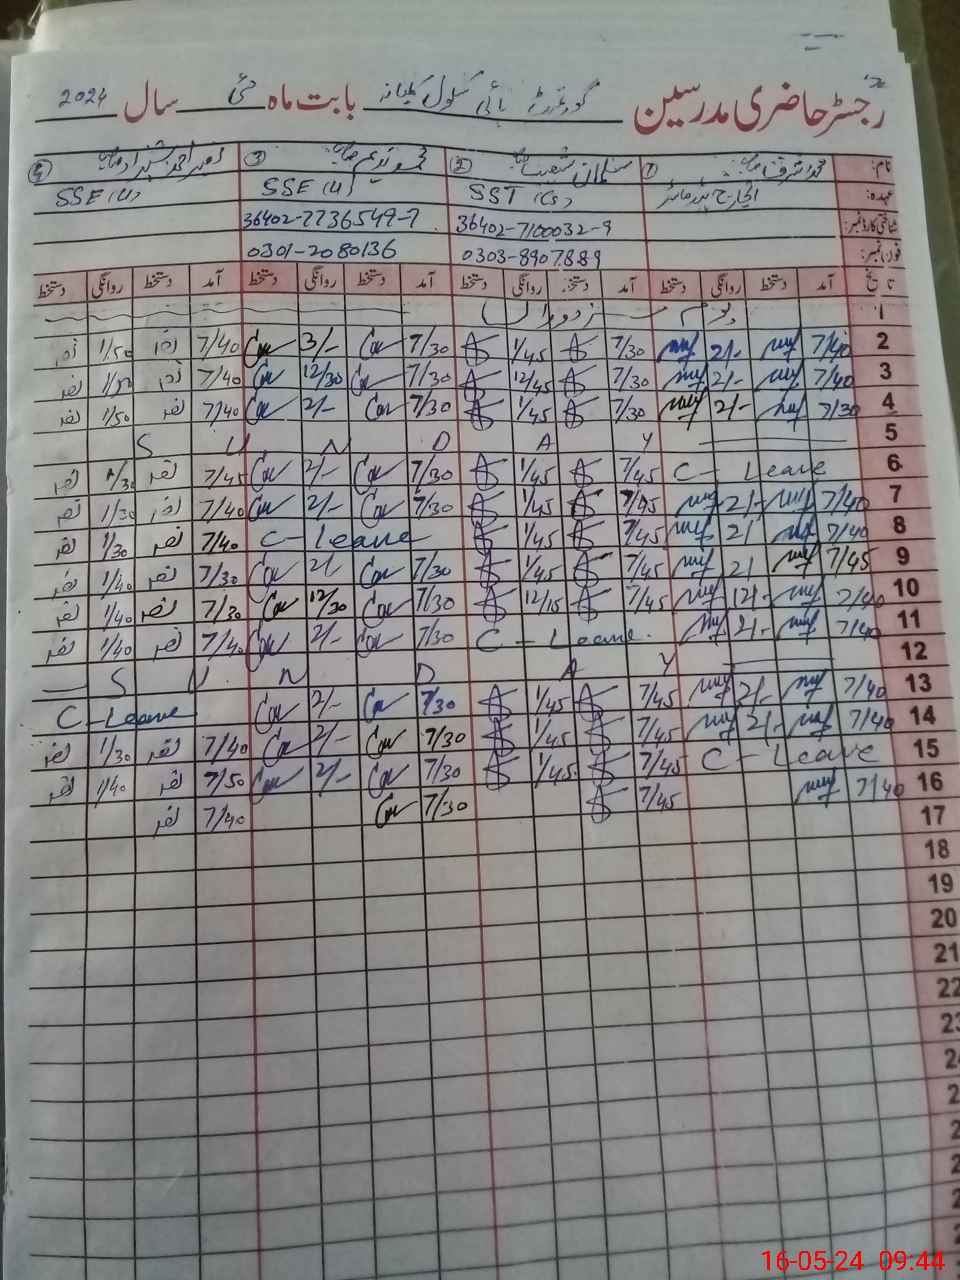 رجسٹر حاضری مدرسین گورنمنٹ ہائی سکول بابت ماہ مئی سال 2024
نام: ① محمد اشرف صاحب ② سلمان شعیب صاحب ③ محمود ندیم صاحب ④
عہدہ: انچارج ہیڈ ماسٹر SST (CS) SSE (U) SSE (U)
شناختی کارڈ نمبر: 36402-7100032-9 36402-7736549-7
فون نمبر: 0303-8907889 0301-2080136
تاریخ آمد دستخط روانگی دستخط آمد دستخط روانگی دستخط آمد دستخط روانگی دستخط آمد دستخط روانگی دستخط
1 یوم مزدوراں
2 7/40 2/- 7/30 1/45 7/30 3/- 7/40 1/50
3 7/40 2/- 7/30 12/45 7/30 12/30 7/40 1/50
4 7/30 2/- 7/30 1/45 7/30 2/- 7/40 1/50
5 S U N D A Y
6 C - Leave 7/45 1/45 7/30 2/- 7/45 1/30
7 7/40 2/- 7/45 1/45 7/30 2/- 7/40 1/30
8 7/40 2/ 7/45 1/45 C - Leave 7/40 1/30
9 7/45 2/ 7/45 1/45 7/30 2/- 7/30 1/40
10 7/40 12/- 7/45 12/15 7/30 12/30 7/30 1/40
11 7/40 2/- C - Leave. 7/30 2/- 7/40 1/40
12 S U N D A Y
13 7/40 2/- 7/45 1/45 7/30 2/- C - Leave
14 7/40 2/- 7/45 1/45 7/30 2/- 7/40 1/30
15 C - Leave 7/45 1/45 7/30 2/- 7/50 1/40
16 7/40 7/45 7/30 7/40
17
18
19
20
21
22
23
16-05-24 09:44